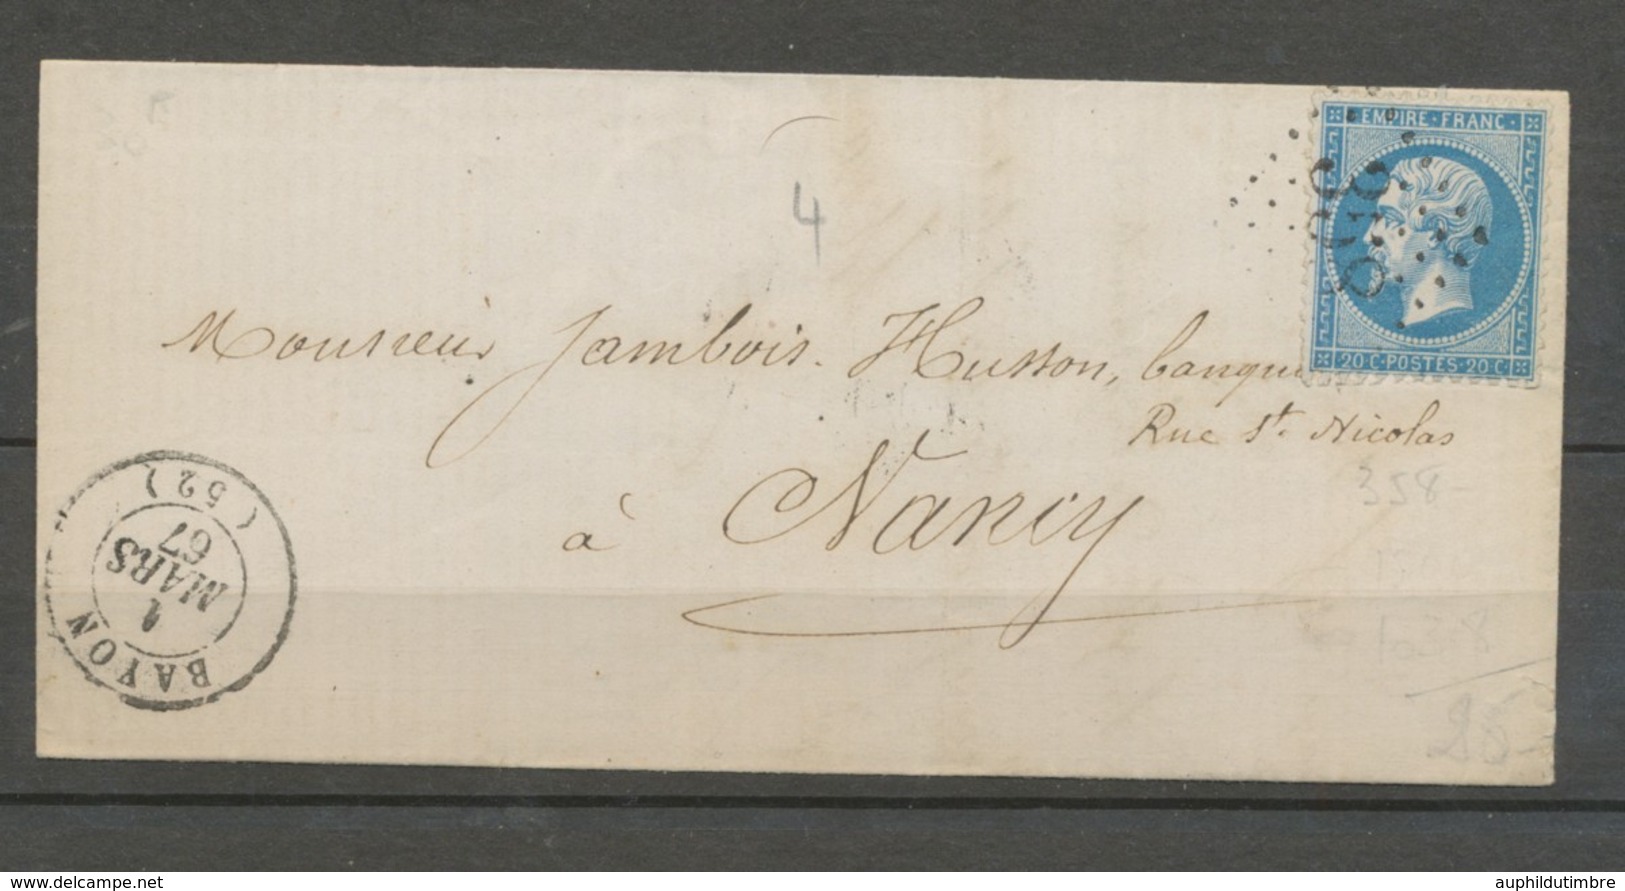 EMPIRE · FRANC ·
358
20 C · POSTES · 20 C
4
Monsieur Jambois-Husson, banqu
Rue St. Nicolas
à Nancy
358-
BAYON
1
MARS
67
(52)
delcampe.net
auphildutimbre